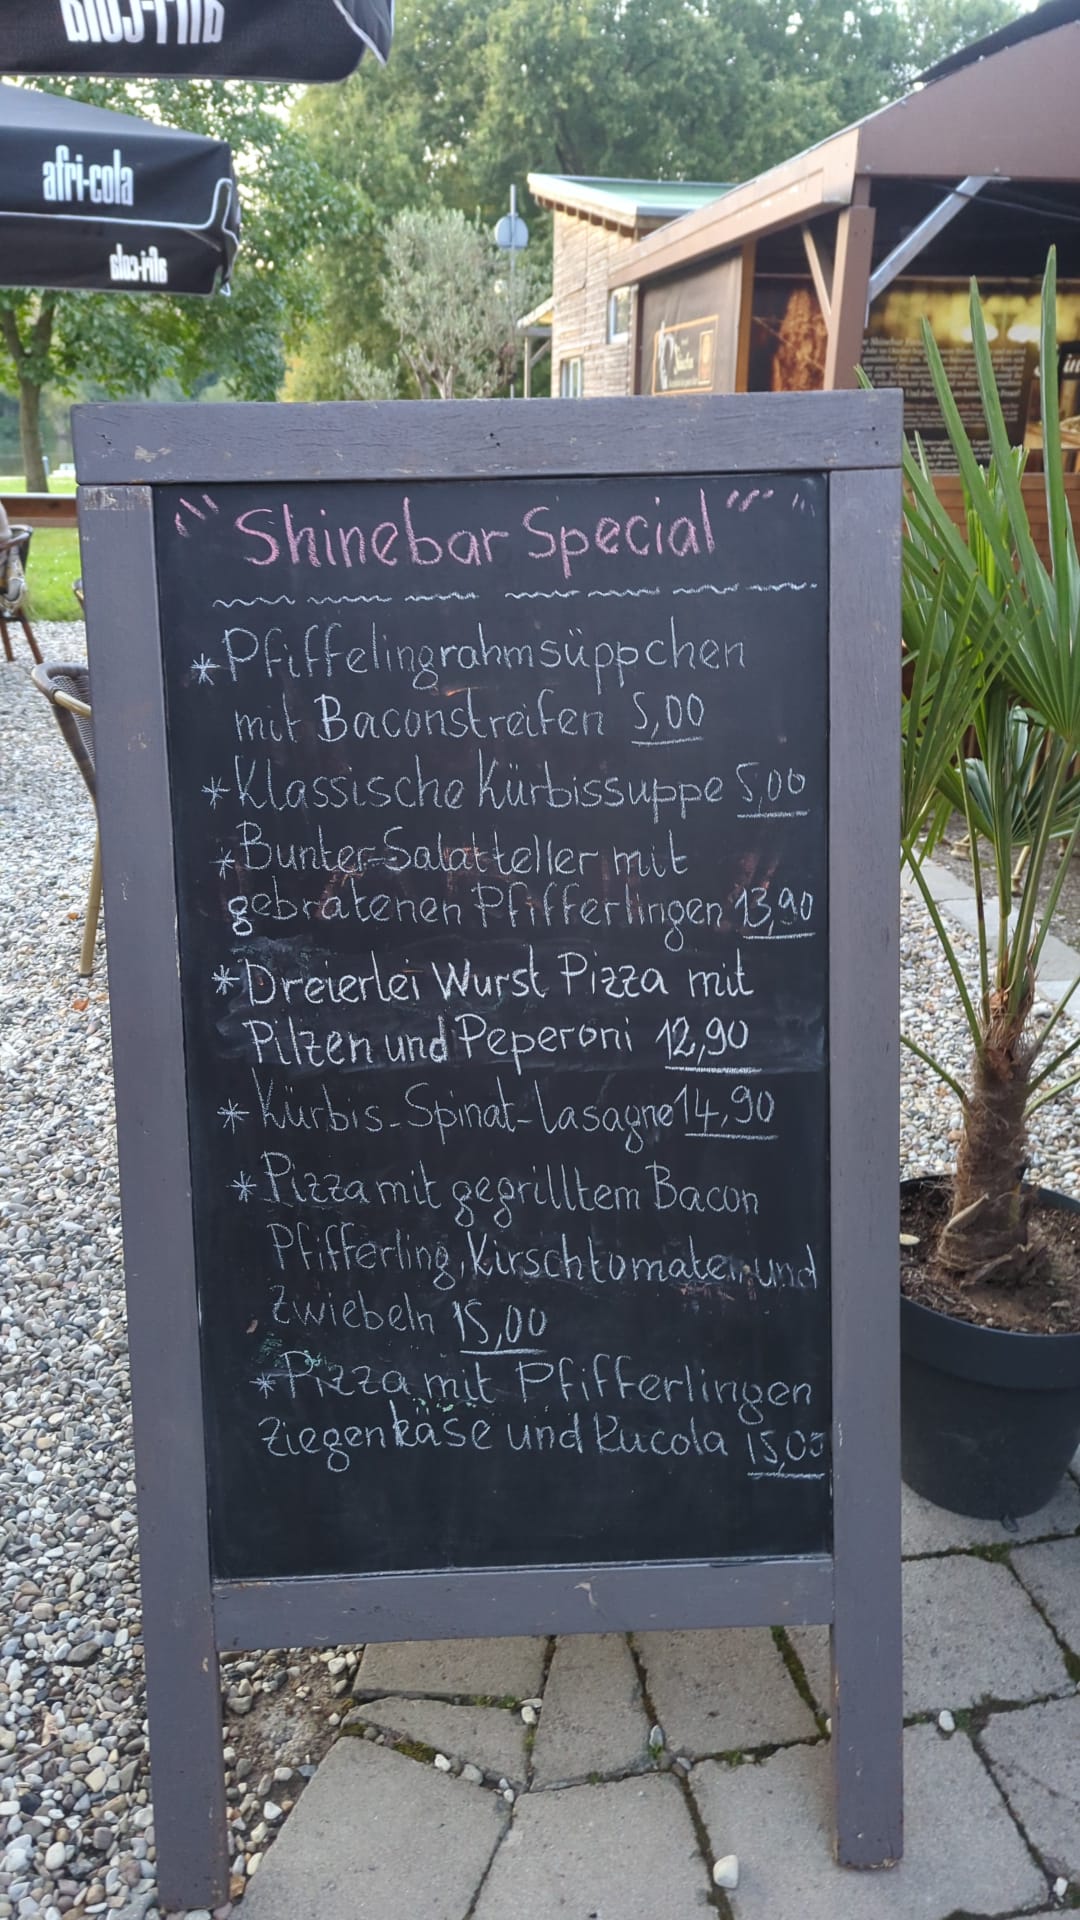 afri-cola
afri-cola
afri-cola
"Shinebar Special"
*Pfiffelingrahmsüppchen
mit Baconstreifen 5,00
*Klassische Kürbissuppe 5,00
*Bunter-Salatteller mit
gebratenen Pfifferlingen 13,90
*Dreierlei Wurst Pizza mit
Pilzen und Peperoni 12,90
*Kürbis-Spinat-Lasagne 14,90
*Pizza mit gegrilltem Bacon
Pfifferling, Kirschtomaten und
Zwiebeln 15,00
*Pizza mit Pfifferlingen
Ziegenkäse und Rucola 15,00